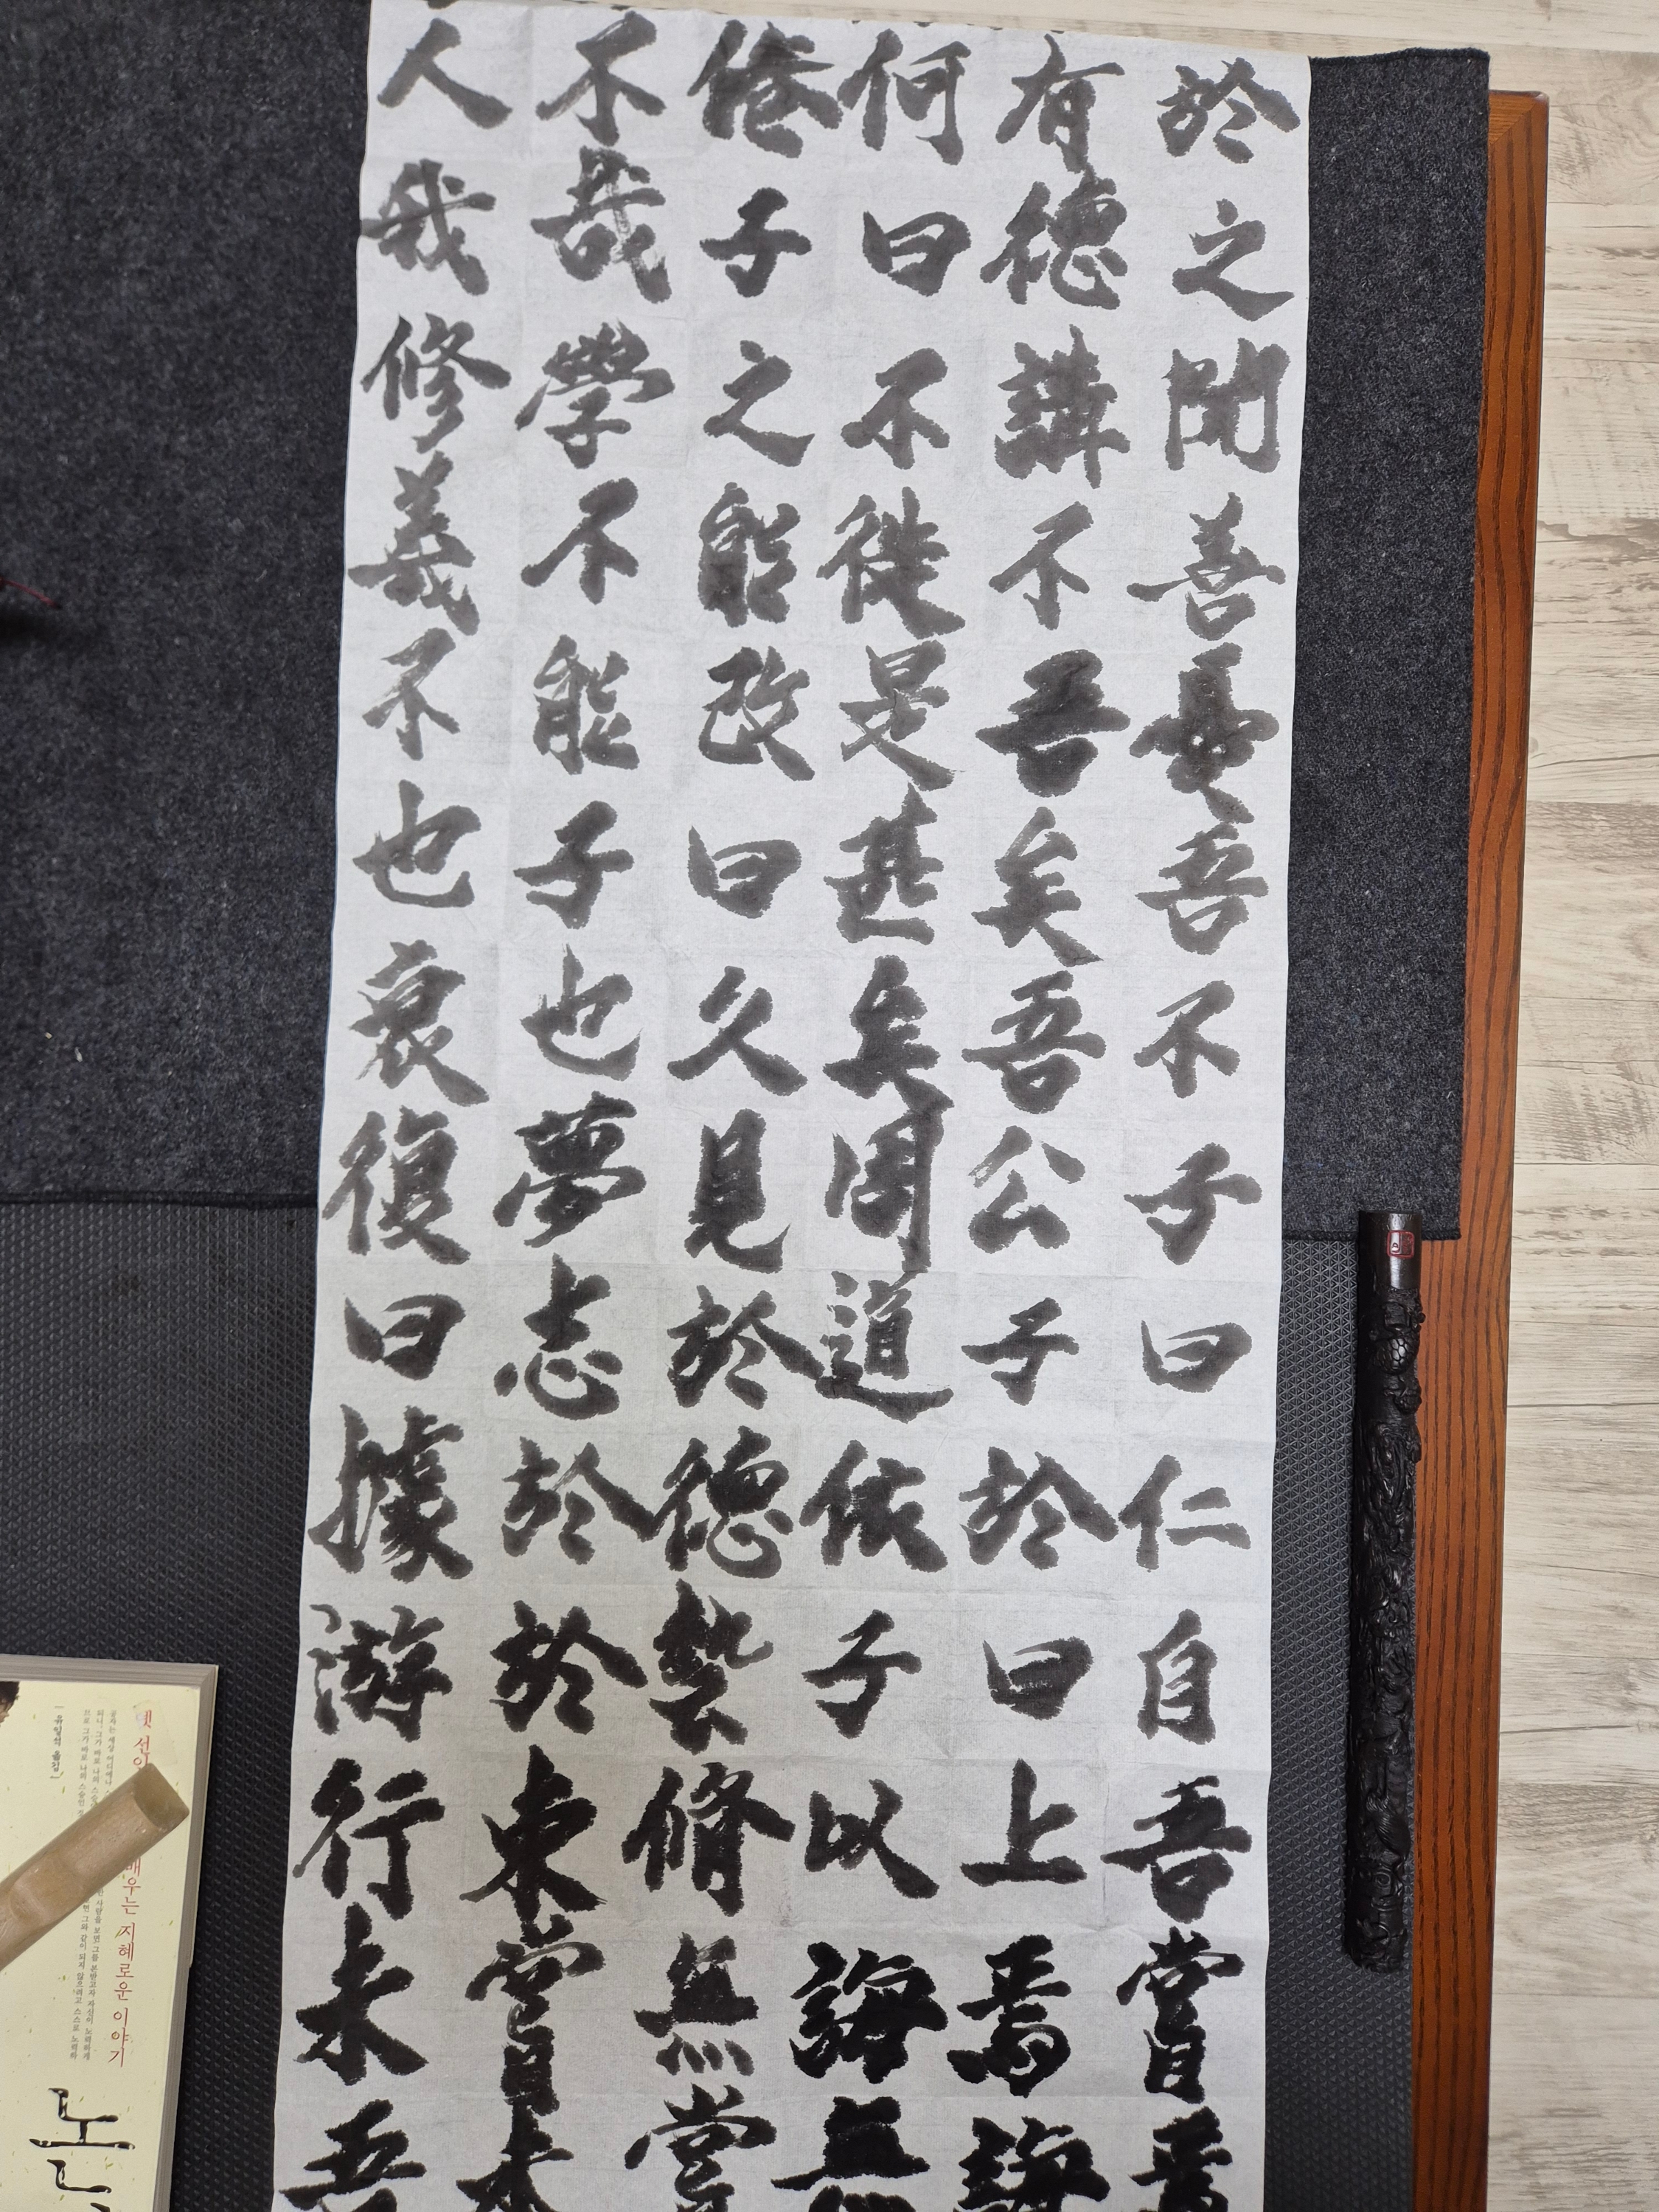 人不倦何有於
我哉子曰德之
修學之不講聞
義不能徙不善
不能改是吾憂
也子曰甚矣吾
衰也久矣吾不
復夢見周公子
曰志於道子曰
據於德依於仁
游於藝子曰自
行束脩以上吾
未嘗無誨焉嘗
吾未嘗無誨焉
옛 선인
배우는 지혜로운 이야기
노